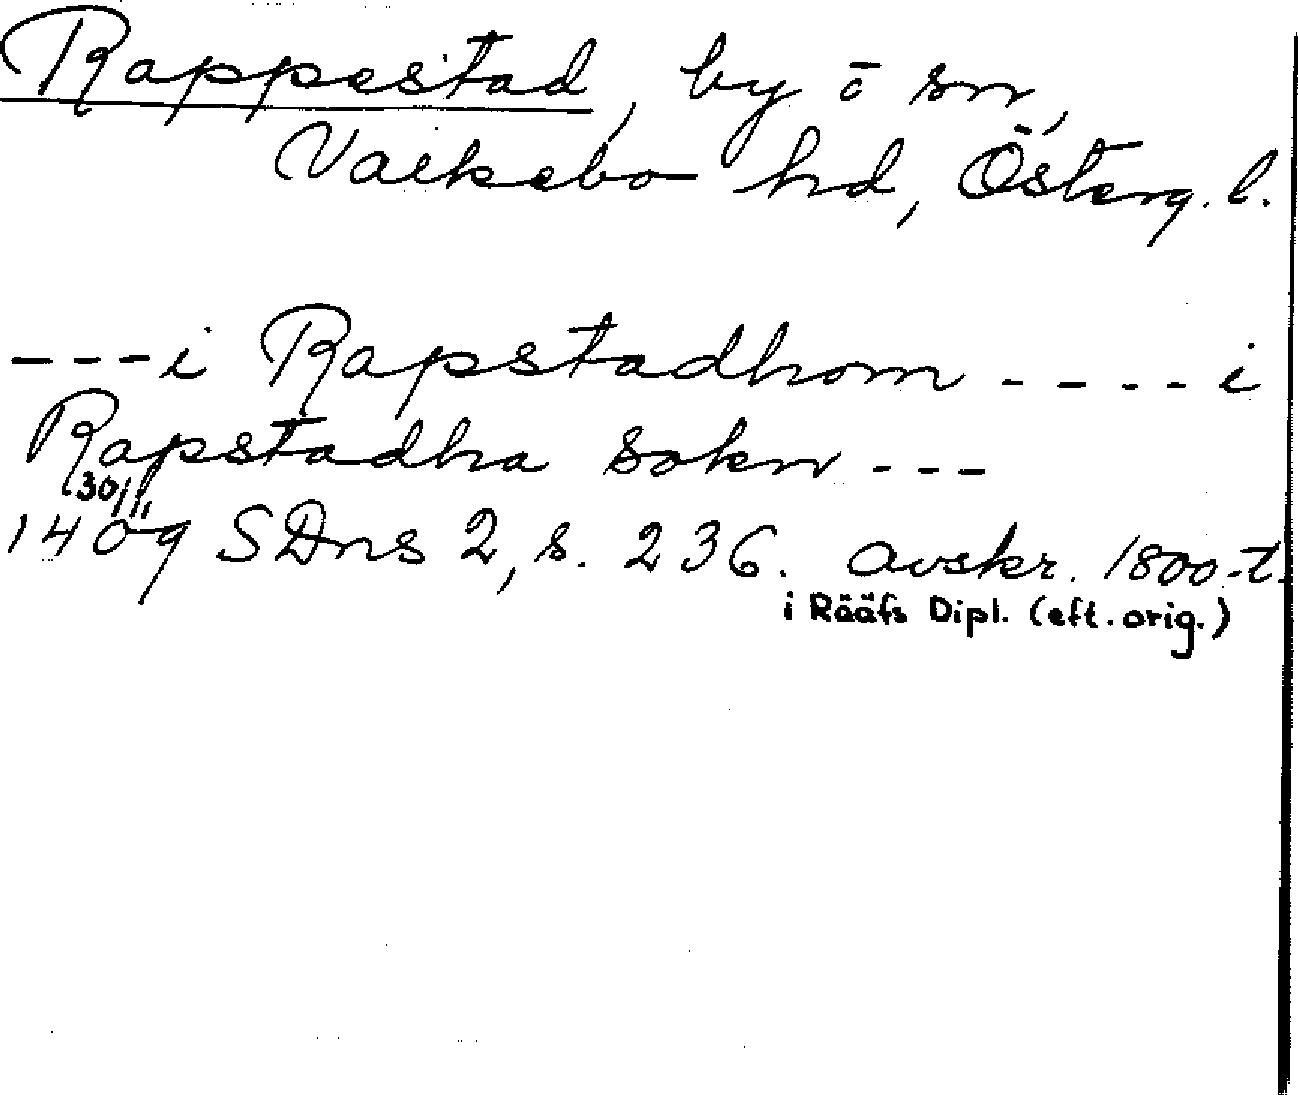 Rappestad, by o sn,
Valkebo hd, Österg. l.
---i Rapstadhom ---- i
Rapstadha sokn ---
30/11
1409 SDns 2, s. 236. avskr. 1800-t.
i Rääfs Dipl. (eft. orig.)